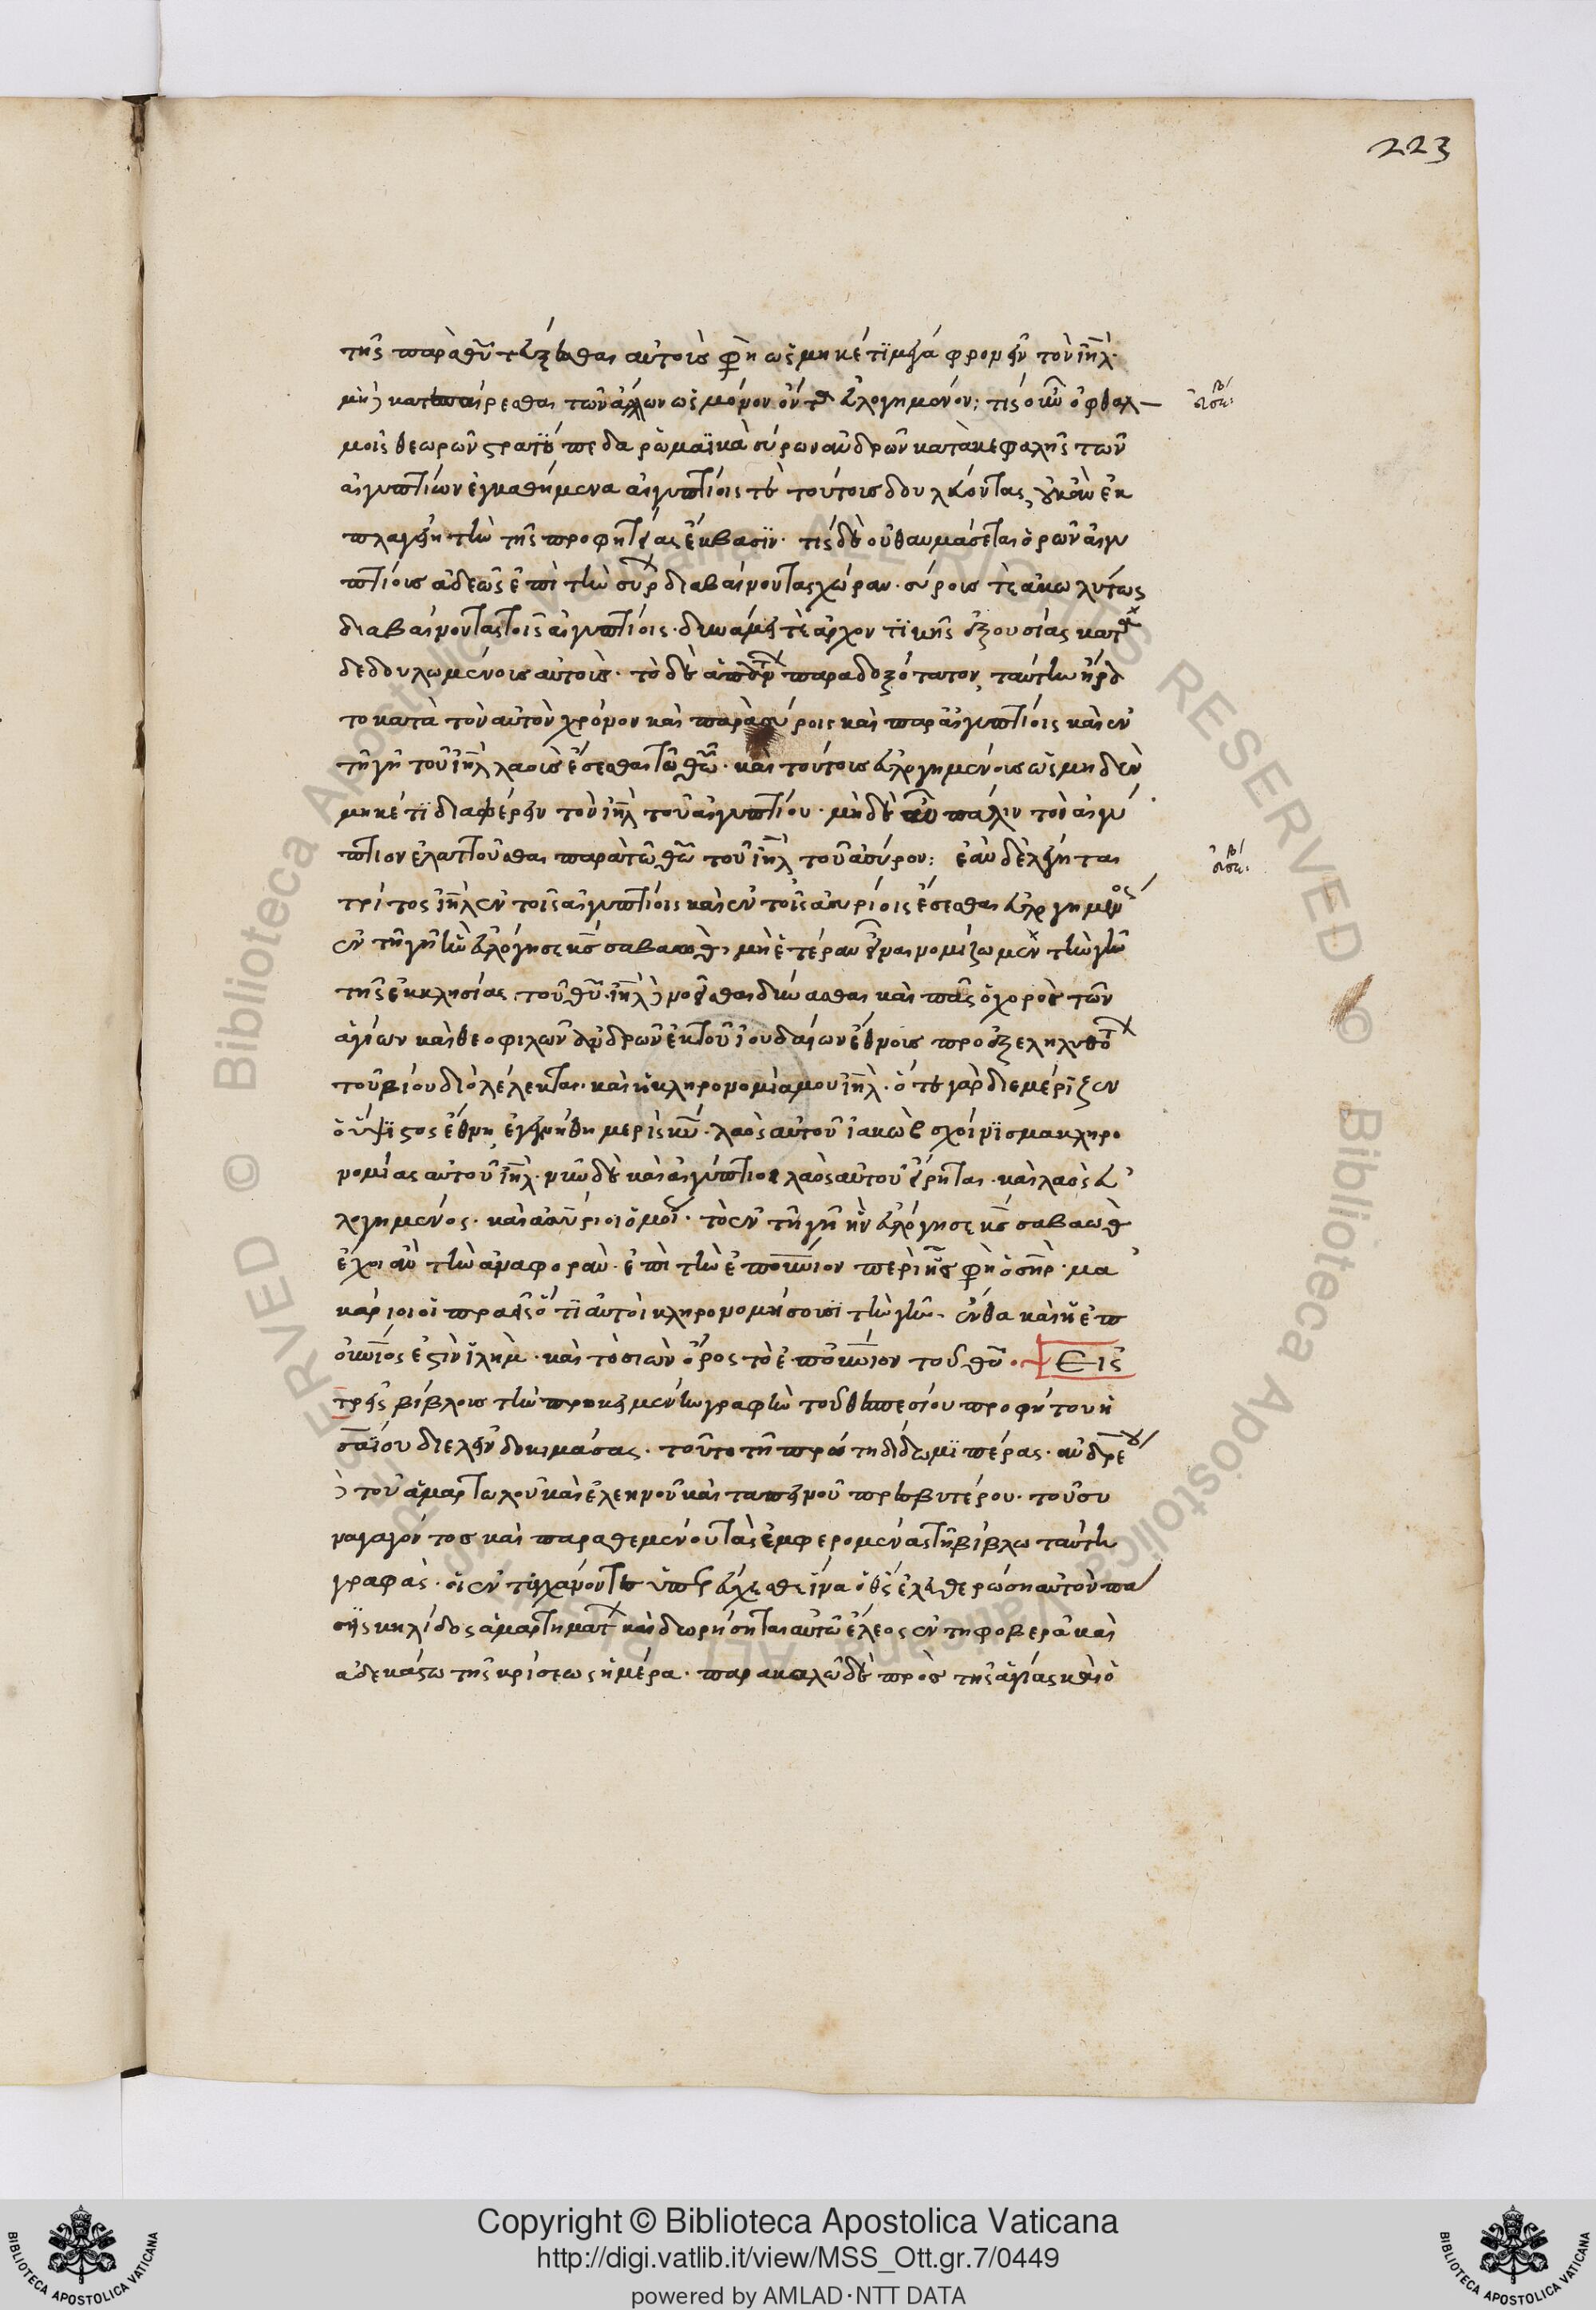 223
τῆς παρὰ θυ τεύξεσθαι αὐτοὺς φη ὡς μηκέτι μεγα φρονεῖν τὸν ιηλ.
μὴ κατεπαίρεσθαι τῶν ἄλλων ὡς μόνον ὄντα εὐλογημένον; τίς οὖν ὀφθαλ-
μοῖς θεωρῶν στρατόπεδα ῥωμαϊκὰ σύρων ἀνδρῶν κατὰ κεφαλῆς τῶν
αἰγυπτίων ἐγκαθήμενα αἰγυπτίοις τὲ τούτοις δουλεύοντας, οὐκ ἂν ἐκ
πλαγείη τὴν τῆς προφητείας ἔκβασιν. τίς δὲ οὐ θαυμάσεται ὁρῶν αἰγυ
πτίους ἀδεῶς ἐπὶ τὴν συρ διαβαίνοντας χώραν. σύρους τὲ ἀκωλύτως
διαβαίνοντας τοῖς αἰγυπτίοις. δυνάμει τὲ ἀρχοντικῆς ἐξουσίας κατα
δεδουλωμένοις αὐτοῖς. τὸ δὲ παραδοξότατον,
το κατὰ τὸν αὐτὸν χρόνον καὶ παρὰ σύροις καὶ παρ' αἰγυπτίοις καὶ ἐν
τῇ γῇ τοῦ ιηλ λαοὺς ἔσεσθαι τῷ θω. καὶ τούτοις εὐλογημένοις ὡς μηδὲν
μηκέτι διαφέρειν τὸν ιηλ τοῦ αἰγυπτίου. μὴ δὲ αὖ πάλιν τὸν αἰγύ
πτιον ἐλαττοῦσθαι παρὰ τῷ θω τοῦ ιηλ τοῦ ἀσύρου: ἐὰν δὲ λέγηται
τρίτος ιηλ ἐν τοῖς αἰγυπτίοις καὶ ἐν τοῖς ἀσυρίοις ἔσεσθαι εὐλογημένος
ἐν τῇ γῇ ἣν εὐλόγησε κς σαβαώθ, μὴ ἑτέραν εἶναι νομίζωμεν τὴν γῆν
τῆς ἐκκλησίας τοῦ θυ. ιηλ νοεῖσθαι δύνασθαι καὶ πᾶς ὁ χορὸς τῶν
ἁγίων καὶ θεοφιλῶν ἀνδρῶν ἐκ τοῦ ἰουδαίων ἔθνους προεξεληλυθότ
τοῦ βίου διὸ λέλεκται. καὶ ἡ κληρονομία μου ιηλ. ὅτε γὰρ διεμέριζεν
ὁ ὕψιστος ἔθνη, ἐγενήθη μερὶς κυ. λαὸς αὐτοῦ ἰακὼβ σχοίνισμα κληρο
νομίας αὐτοῦ ιηλ. νῦν δὲ καὶ αἰγύπτιοι λαὸς αὐτοῦ εἴρηται. καὶ λαὸς εὐ
λογημένος. καὶ ἀσσύριοι ὁμοί. τὸ ἐν τῇ γῇ ἣν εὐλόγησε κς σαβαὼθ
ἔχοι ἂν τὴν ἀναφορὰν. ἐπὶ τὴν ἐπουνιον περὶ ἧς φη ὁ σηρ. μα
κάριοι οἱ πραεῖς ὅτι αὐτοὶ κληρονομήσουσι τὴν γῆν. ἔνθα καὶ ἡ ἐπ
ουνιος ἐστὶν ιλημ. καὶ τὸ σιὼν ὄρος τὸ ἐπουνιον τοῦ θυ. Εἰς
τρεῖς βίβλους τὴν προκειμένην γραφὴν τοῦ θεσπεσίου προφήτου ἡ
σαΐου διελεῖν δοκιμάσας. τοῦτο τῇ πρώτῃ δίδωμι πέρας. ἀνδρέου
τοῦ ἁμαρτωλοῦ καὶ ἐλεεινοῦ καὶ ταπεινοῦ πρεσβυτέρου. τοῦ συ
ναγαγόντος καὶ παραθεμένου τὰς ἐμφερομένας τῇ βίβλῳ ταύτῃ
γραφὰς. οἱ ἐντυγχάνοντες ὑπερεύχεσθε ἵνα ὁ θς ἐλευθερώσῃ αὐτὸν πά
σης κηλίδος ἁμαρτηματ καὶ δωρήσηται αὐτῷ ἔλεος ἐν τῇ φοβερᾷ καὶ
ἀδεκάστῳ τῆς κρίσεως ἡμέρᾳ. παρακαλῶ δὲ πρὸς τῆς ἁγίας καὶ ὁ
Copyright © Biblioteca Apostolica Vaticana
http://digi.vatlib.it/view/MSS_Ott.gr.7/0449
powered by AMLAD·NTT DATA
BIBLIOTECA APOSTOLICA VATICANA
BIBLIOTECA APOSTOLICA VATICANA